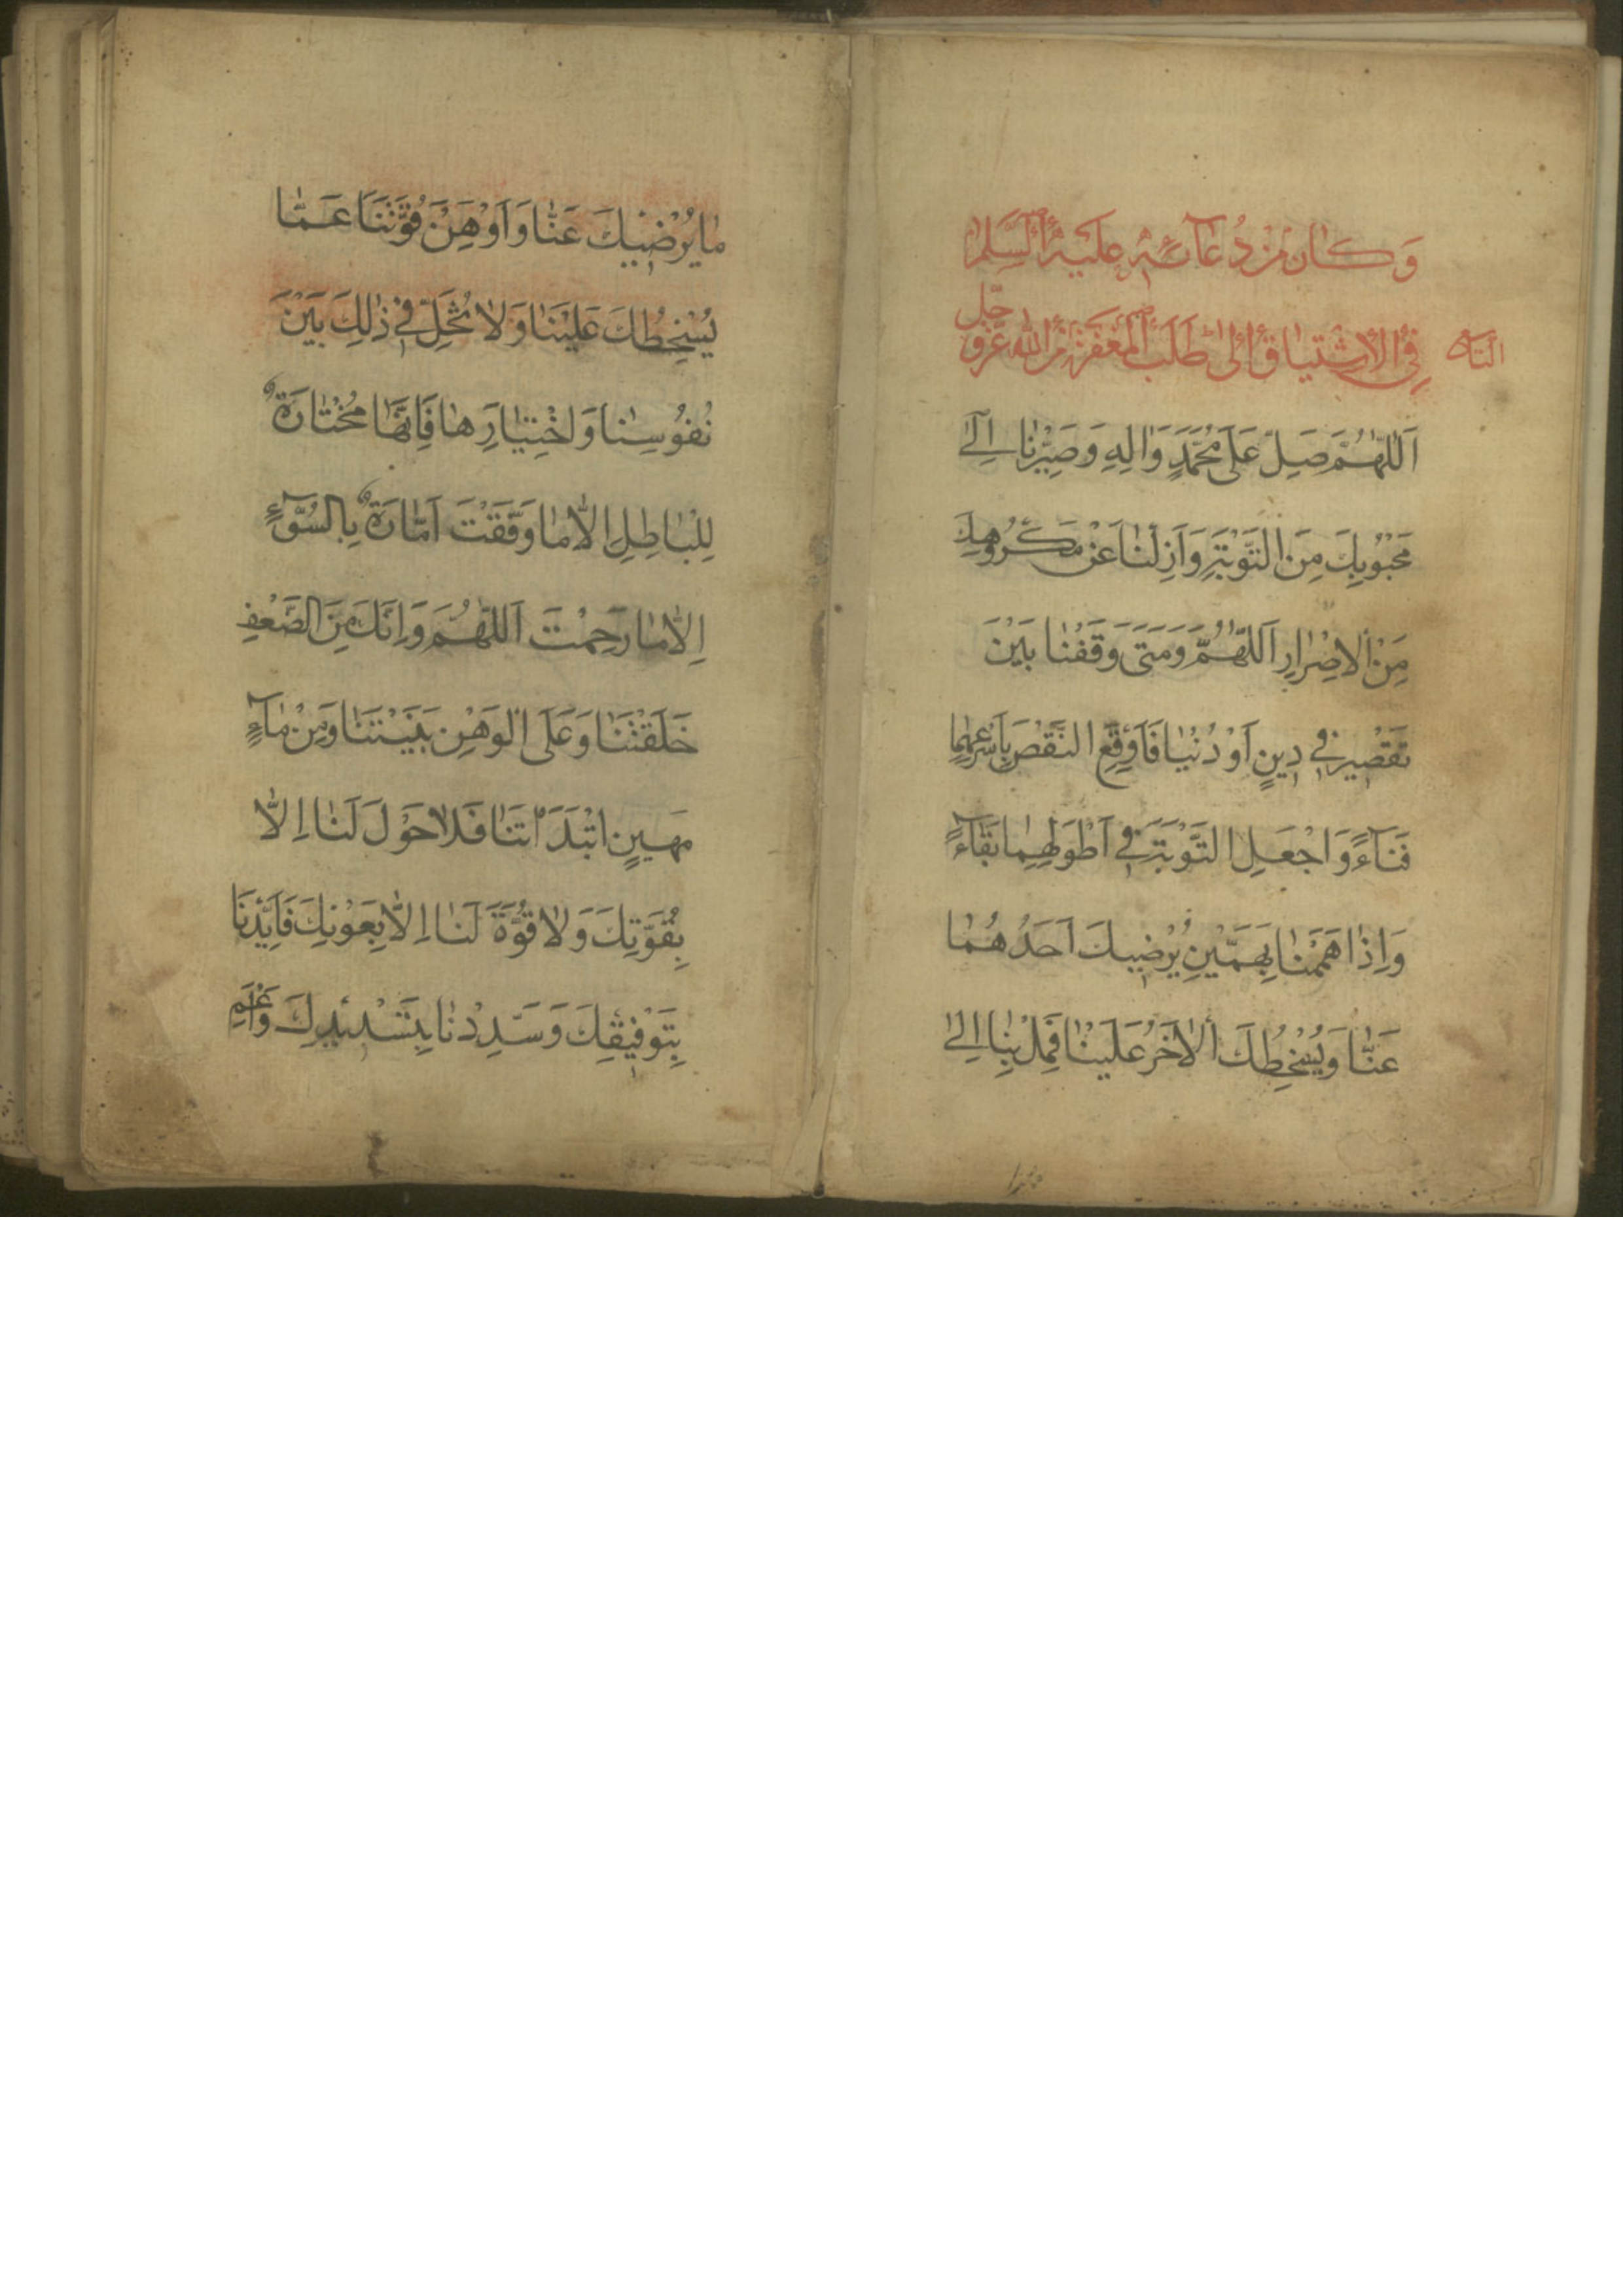 وَكانَ مِنْ دُعآئِهِ عَلَيْهِ السَّلَامُ
فِي الْاِشْتِياقِ اِلىٰ طَلَبِ الْمَغْفِرَةِ مِنَ اللهِ عَزَّ وَ
جَلَّ
اَللّٰهُمَّ صَلِّ عَلىٰ مُحَمَّدٍ وَاٰلِهِ وَصَيِّرْنا اِلىٰ
مَحْبُوبِكَ مِنَ التَّوْبَةِ وَاَزِلْنا عَنْ مَكْرُوهِكَ
مِنَ الْاِصْرارِ اَللّٰهُمَّ وَمَتىٰ وَقَفْنا بَيْنَ
نَقْصَيْنِ فِي دِينٍ اَوْ دُنْيا فَاَوْقِعِ النَّقْصَ بِاَسْرَعِهِما
فَنآءً وَاجْعَلِ التَّوْبَةَ فِي اَطْوَلِهِما بَقآءً
وَاِذا هَمَمْنا بِهَمَّيْنِ يُرْضِيكَ اَحَدُهُما
عَنّا وَيُسْخِطُكَ الْاٰخَرُ عَلَيْنا فَمِلْ بِنا اِلىٰ
ما يُرْضِيكَ عَنّا وَاَوْهِنْ قُوَّتَنا عَمّا
يُسْخِطُكَ عَلَيْنا وَلا تُخَلِّ فِي ذٰلِكَ بَيْنَ
نُفُوسِنا وَاخْتِيارِها فَاِنَّها مُخْتارَةٌ
لِلْباطِلِ اِلّا ما وَفَّقْتَ اَمّارَةٌ بِالسُّوٓءِ
اِلّا ما رَحِمْتَ اَللّٰهُمَّ وَاِنَّكَ مِنَ الضَّعْفِ
خَلَقْتَنا وَعَلَى الْوَهْنِ بَنَيْتَنا وَمِنْ مآءٍ
مَهِينٍ ابْتَدَأْتَنا فَلا حَوْلَ لَنا اِلّا
بِقُوَّتِكَ وَلا قُوَّةَ لَنا اِلّا بِعَوْنِكَ فَاَيِّدْنا
بِتَوْفِيقِكَ وَسَدِّدْنا بِتَسْدِيدِكَ وَاَعْمِ